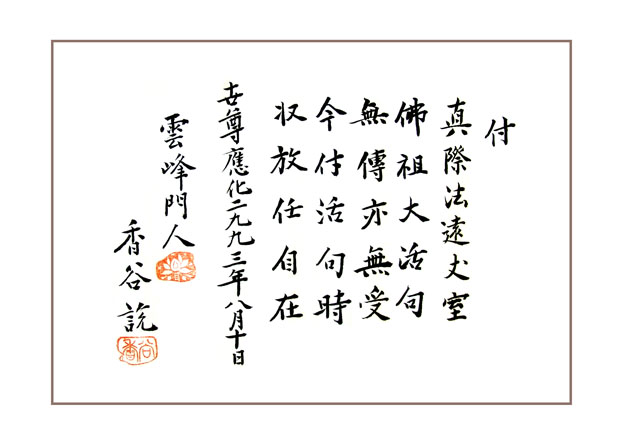 付
真際法遠丈室
佛祖大活句
無傳亦無受
今付活句時
収放任自在
世尊應化二九九三年八月十日
雲峰門人
香谷說
香谷